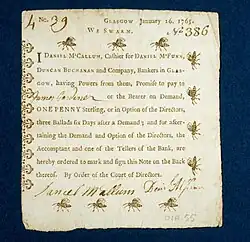 GLASGOW January 16. 1765.
4 No. 39
No 386
WE SWARM.
I DANIEL M'CALLUM, Cashier for DANIEL M'FUNN,
DUNCAN BUCHANAN and COMPANY, Bankers in GLAS-
GOW, having Powers from them, Promise to pay to
or the Bearer on Demand,
ONE PENNY Sterling, or in Option of the Directors,
three Ballads six Days after a Demand; and for ascer-
taining the Demand and Option of the Directors, the
Accomptant and one of the Tellers of the Bank, are
hereby ordered to mark and sign this Note on the Back
thereof. By Order of the Court of Directors.